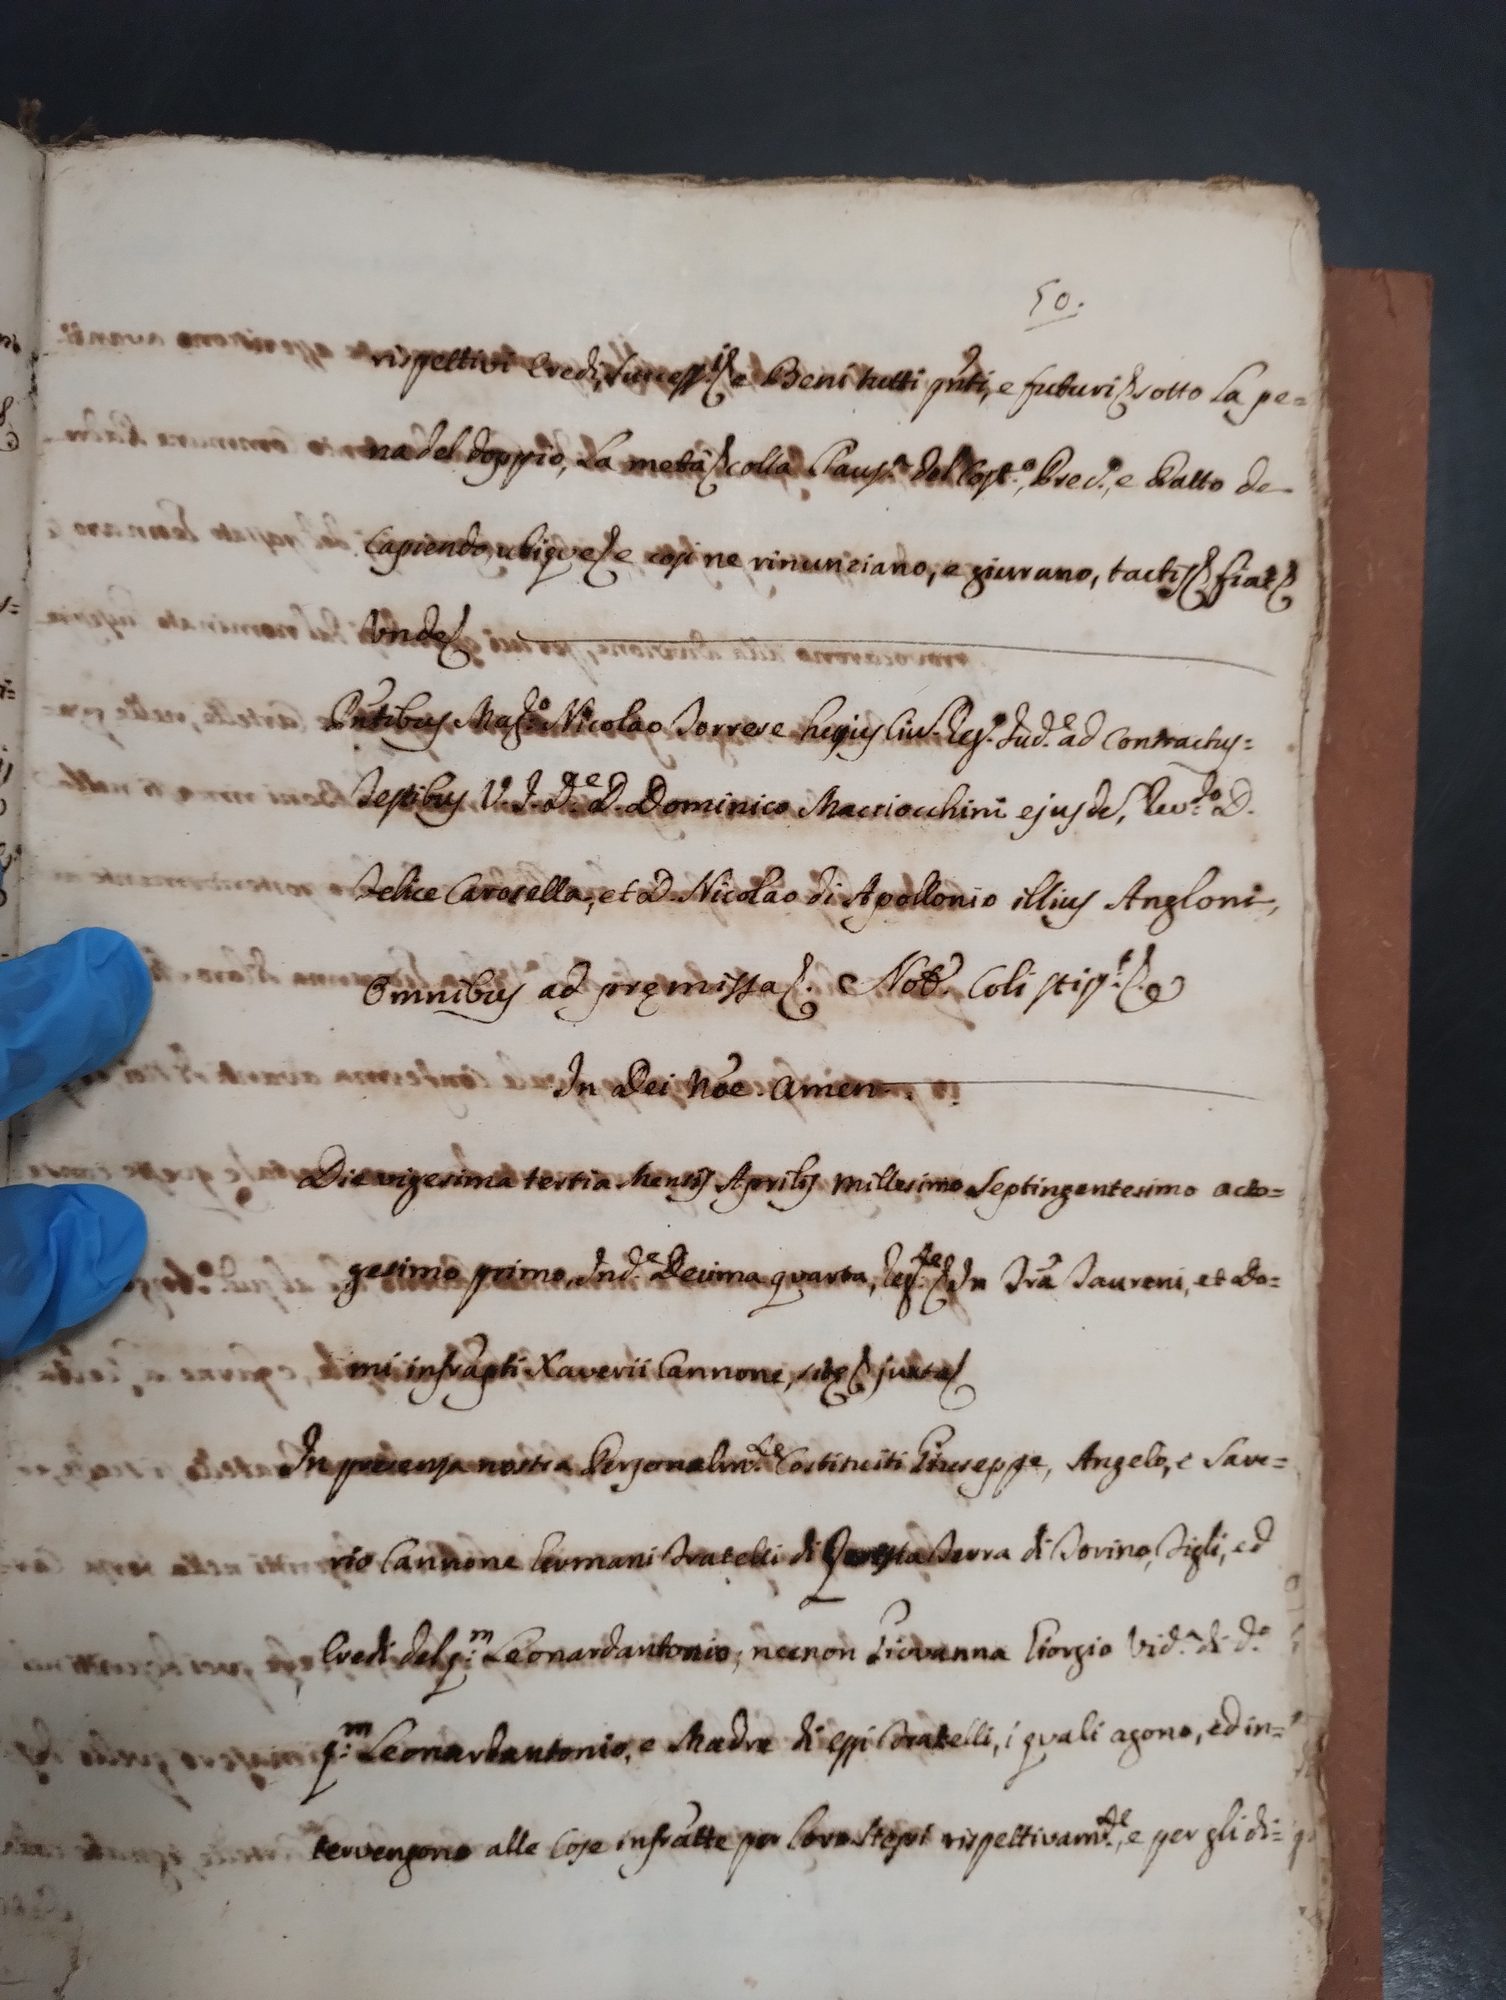 50.
rispettivi Eredi, Success:ri e Beni tutti pn̄ti, e futuri sotto la pe=
na del doppio, la metà colla Claus.a del Cost.o, Prec.o, e Patto de
Capiendo, ubique e così ne rinunciano, e giurano, tactis fiat
Unde
Pn̄tibus Mag:co Nicolao Torrese hujus Civ. Reg.o Jud.e ad Contractus=
Testibus U. J. D.re D. Dominico Macciocchini ejusd, Rev:do D.
Felice Carosella, et D. Nicolao di Apollonio illius Angloni,
Omnibus ad premissa. e Not. Coli stip:t.
In Dei Nōe Amen
Die vigesima tertia Mensis Aprilis Millesimo Septingentesimo octo=
gesimo primo, Ind.e Decima quarta, Reg:te In Trā Taureni, et Do=
mi infrāpti Xaverii Cannone, site juxta
In presenza nostra Personalm:te Costituiti Giuseppe, Angelo, e Save=
rio Cannone Germani Fratelli di questa Terra di Torino, Figli, ed
Eredi del q:m Leonardantonio, necnon Giovanna Giorgio Vid.a di d.o
q:m Leonardantonio, e Madre di essi Fratelli, i quali agono, ed in=
tervengono alle Cose infrātte per loro stessi rispettivam:te, e per gli di=